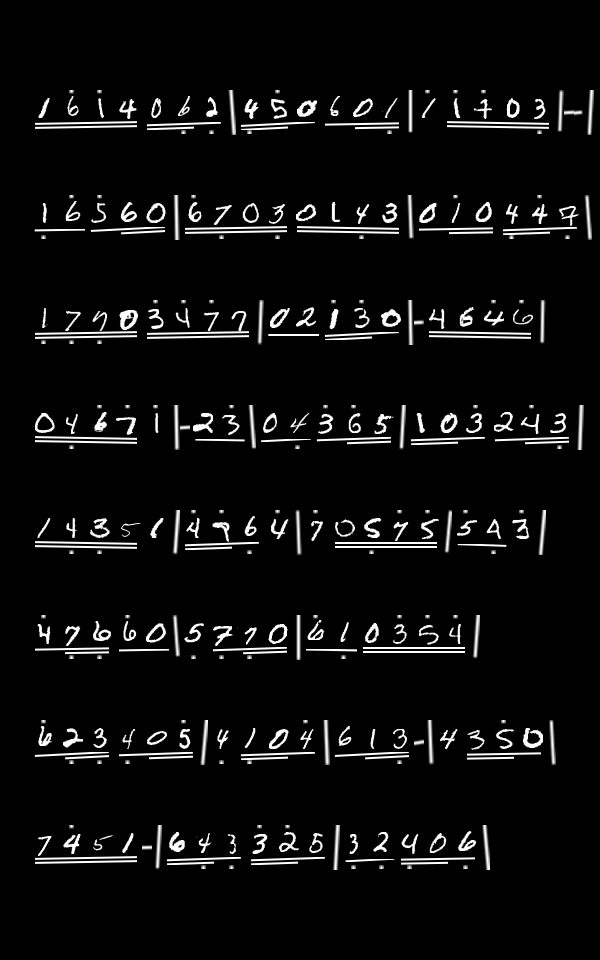 1 6 1 4 0 6 2 | 4 5 0 6 0 1 | 1 1 7 0 3 | - |
1 6 5 6 0 | 6 7 0 3 0 1 4 3 | 0 1 0 4 4 7 |
1 7 7 0 3 4 7 7 | 0 2 1 3 0 | - 4 6 4 6 |
0 4 6 7 1 | - 2 3 | 0 4 3 6 5 | 1 0 3 2 4 3 |
1 4 3 5 1 | 4 7 6 4 | 7 0 5 7 5 | 5 4 3 |
4 7 6 6 0 | 5 7 7 0 | 6 1 0 3 5 4 |
6 2 3 4 0 5 | 4 1 0 4 | 6 1 3 - | 4 3 5 0 |
7 4 5 1 - | 6 4 3 3 2 5 | 3 2 4 0 6 |